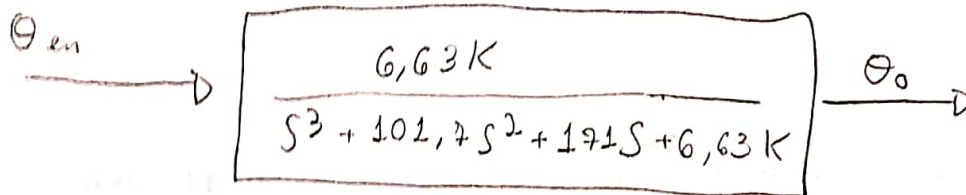 θen
6,63K
θo
S³ + 101,7S² + 171S + 6,63K